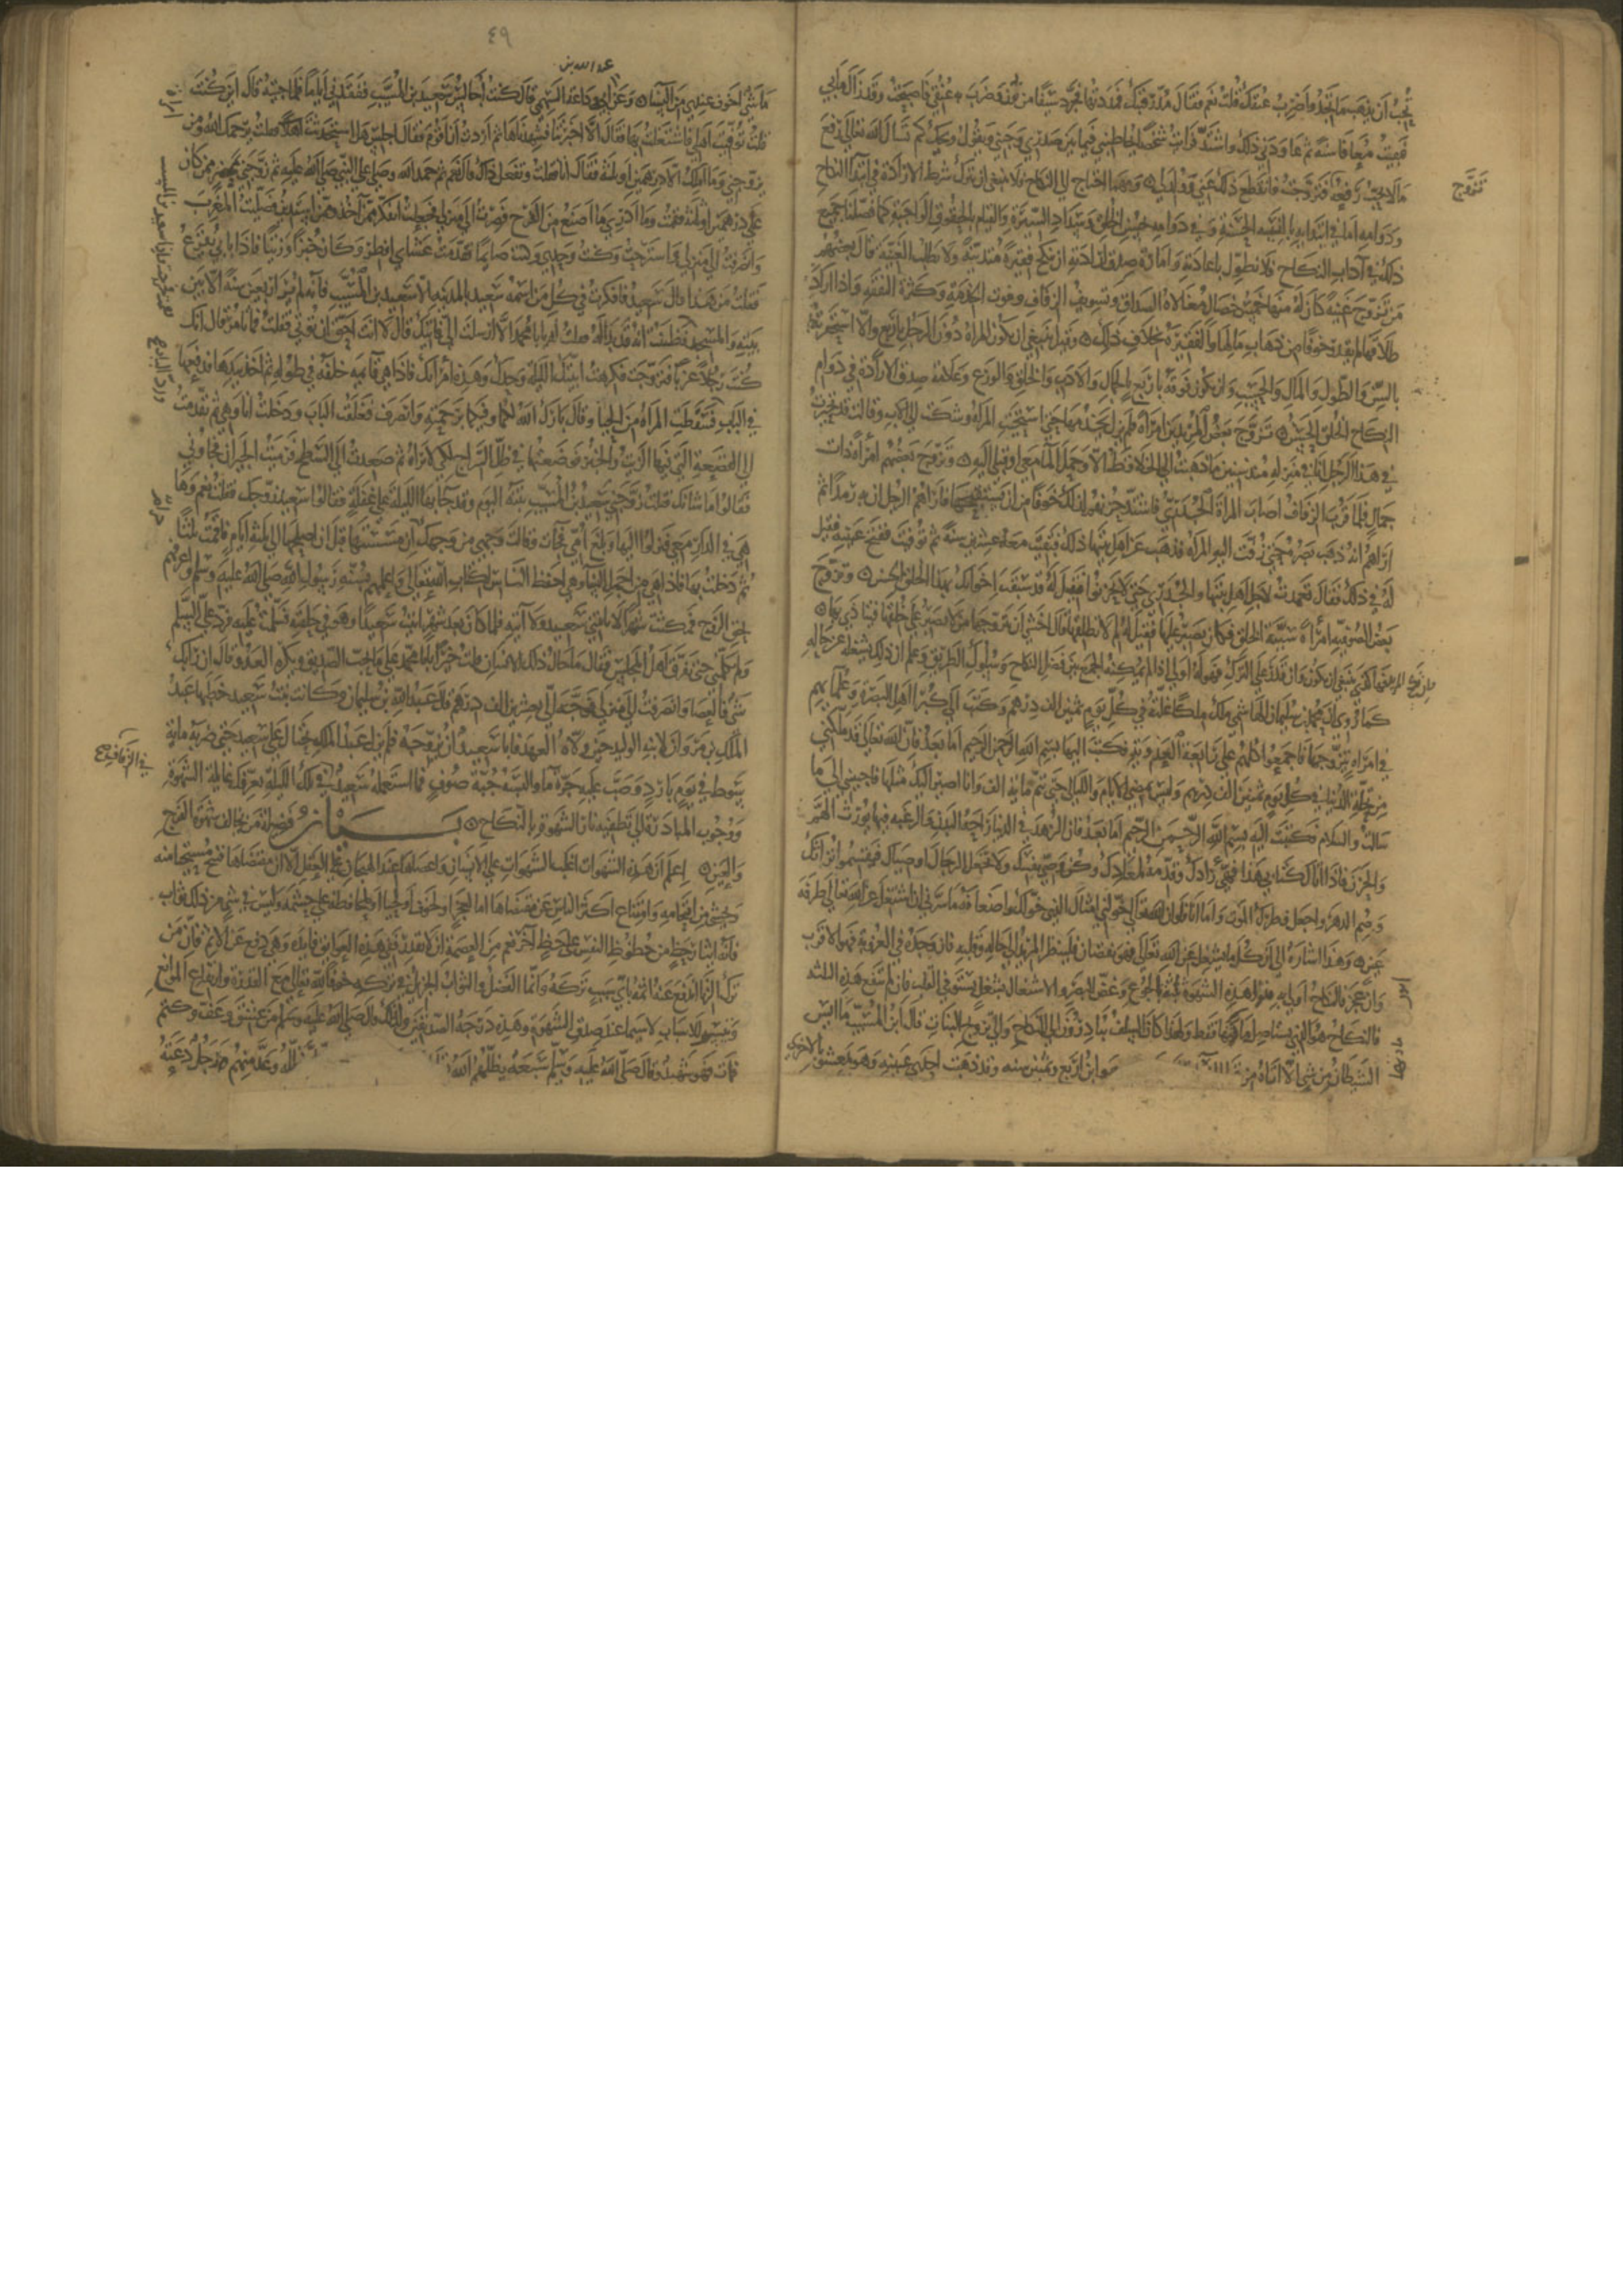 تحب أن يذهب ما تجد وأضرب عنقك قلت نعم فقال مد رقبتك فمددتها فجرد سيفا من نور فضرب به عنقي فأصبحت وقد زال ما بي
فبقيت معافا سنة ثم عاودني ذلك واشتد فرأيت شخصا يخاطبني فيما بين صدري وجنبي ويقول ويحك كم تسأل الله تعالى رفع
ما لا يحب رفعه فتزوجت فانقطع ذلك عني وولد لي ومهما احتاج الى النكاح فلا ينبغي ان يترك شرط الارادة في ابتدا النكاح
تتزوج
ودوامه اما في ابتدايه فبالنية الحسنة وفي دوامه بحسن الخلق وسداد السيرة والقيام بالحقوق الواجبة كما فصلنا جميع
ذلك في آداب النكاح فلا نطول باعادته وامارة صدق ارادته ان ينكح فقيرة متدينة ولا يطلب الغنية قال بعضهم
من تزوج غنية كان له منها خمس خصال مغالاة الصداق وتسويف الزفاف وفوت الخدمة وكثرة النفقة واذا اراد
طلاقها لم يقدر خوفا من ذهاب مالها والفقيرة بخلاف ذلك وقيل ينبغي ان تكون المراة دون الرجل باربع والا استحقرته
بالسن والطول والمال والحسب وان تكون فوقه باربع بالجمال والادب والخلق والورع وعلامة صدق الارادة في دوام
النكاح الخلق الحسن تزوج بعض المريدين امراة فلم يزل يخدمها حتى استحيت المراة وشكت الى الاب وقالت قد تحيرت
في هذا الرجل انا في منزله منذ سنين ما ذهبت الى الخلا قط الا وحمل الما معي او قبلي اليه وتزوج بعضهم امراة ذات
جمال فلما قرب الزفاف اصاب المراة الجدري فاشتد حزن لذلك خوفا من ان يستقبحها فاراهم الرجل ان به رمدا ثم
اراهم انه ذهب بصره حتى زفت اليه المراة فذهب عن اهل بيتها ذلك فبقيت معه عشرين سنة ثم توفيت ففتح عينيه فقيل
له في ذلك فقال تعمدت لاجل اهل بيتها والجدري حتى لا يحزنوا فقيل له قد سبقت اخوانك بهذا الخلق الحسن وتزوج
بعض الصوفية امراة سيئة الخلق فكان يصبر عليها فقيل له لم لا تطلقها قال اخشى ان يتزوجها من لا يصبر على خلقها فيتاذى بها
فان تزوج المريد فهكذى ينبغي ان يكون وان قدر على الترك فهو له اولى اذا لم يمكنه الجمع بين فضل النكاح وسلوك الطريق وعلم ان ذلك يشغله عن حاله
كما روي ان محمد بن سليمان الهاشمي ملك ملكا غلة في كل يوم ثمنين الف درهم وكتب الى كبرا اهل البصرة وعلمايهم
في امراة يتزوجها فاجمعوا كلهم على رابعة العدوية فكتب اليها بسم الله الرحمن الرحيم اما بعد فان الله تعالى قد ملكني
من غلة الدنيا في كل يوم ثمنين الف درهم وليس تمضي الايام والليالي حتى تتم ماية الف وانا اصير اليك مثلها فاجيبيني الى ما
سالت والسلام فكتبت اليه بسم الله الرحمن الرحيم اما بعد فان الزهد في الدنيا راحة البدن والرغبة فيها تورث الهم
والحزن فاذا اتاك كتابي هذا فهيئ زادك وقدم لمعادك وكن وصي نفسك ولا تجعل الرجال اوصياك فيقتسموا تراثك
وصم الدهر واجعل فطرك الموت واما انا فلو ان الله تعالى خولني امثال الذي خولك واضعافه ما سرني ان اشتغل عن الله تعالى طرفة
عين وهذا اشارة الى ان كل ما يشغل عن الله تعالى فهو نقصان فلينظر المريد الى حاله وقلبه فان وجده في العزوبة فهو الاقرب
وان عجز فالنكاح اولى به ودوا هذه الشهوة ثلثة الجوع وغض البصر والاشتغال بشغل يستولي القلب فان لم تنفع هذه الثلثة
فالنكاح هو الذي يستاصل مادتها فقط ولهذا كان السلف يبادرون الى النكاح والى تزويج البنات قال ابن المسيب ما ايس
الشيطان من شي الا اتاه من وهو ابن اربع وثمنين سنه وقد ذهبت احدى عينيه وهو يعشو بالاخرى
٤٩
عبد الله بن
ما شي اخوف عندي من النسا وعن ابي وداعة السهمي قال كنت أجالس سعيد بن المسيب ففقدني اياما فلما جيته قال اين كنت
قلت توفيت اهلي فاشتغلت بها فقال الا اخبرتنا فشهدناها ثم اردت ان اقوم فقال هل استحدثت امراة فقلت يرحمك الله ومن
يزوجني وما املك الا درهمين او ثلثة فقال انا فقلت وتفعل ذاك قال نعم ثم حمد الله وصلى على النبي صلى الله عليه ثم زوجني بمحضر من كان
على درهمين او ثلثة فقمت وما ادري ما اصنع من الفرح فصرت الى منزلي فجعلت افكر ممن آخذ ممن استدين فصليت المغرب
وانصرفت الى منزلي فاسترحت وكنت وحدي وكنت صايما فقدمت عشاي افطر وكان خبزا وزيتا فاذا بابي يقرع
فقلت من هذا قال سعيد فافكرت في كل من اسمه سعيد بالمدينه الا سعيد بن المسيب فانه لم ير اربعين سنة الا بين
بيته والمسجد فظننت انه قد بدا له فقلت يا ابا محمد الا ارسلت الي فاتيك قال لا انت احق ان توتى فقلت فما تامر قال انك
كنت رجلا عزبا فتزوجت فكرهت ابيتك الليلة وحدك وهذه امرأتك فاذا هي قايمة خلفه في طوله ثم اخذ بيدها فدفعها
في الباب فسقطت المراة من الحيا وقال بارك الله لكما وفيكما برحمته وانصرف فغلقت الباب ودخلت انا وهي ثم تقدمت
الى القصعة التي فيها الزيت والخبز فوضعتها في ظل السراج لكي لا تراه ثم صعدت الى السطح فرميت الجيران فجاوني
فقالوا ما شانك فقلت زوجني سعيد بن المسيب بنته اليوم وقد جا بها الليلة على غفلة فقالوا سعيد زوجك فقلت نعم وها
هي في الدار معي فنزلوا اليها وبلغ امي فجات وقالت وجهي من وجهك حرام ان مسستها قبل ان اصلحها الى ثلثة ايام فاقمت ثلثا
ثم دخلت بها فاذا هي من اجمل النسا ومن احفظ الناس لكتاب الله تعالى واعلمهم بسنة رسول الله صلى الله عليه وسلم واعرفهم
بحق الزوج فمكثت شهرا لا ياتيني سعيد ولا آتيه فلما كان بعد شهر اتيت سعيدا وهو في حلقته فسلمت عليه فرد علي السلام
ولم يكلمني حتى تفرق اهل المجلس فقال ما حال ذلك الانسان فقلت خيرا يا ابا محمد على ما يحب الصديق ويكره العدو قال ان رابك
شي فالعصا وانصرفت الى منزلي فوجه الي بعشرين الف درهم قال عبد الله بن سليمان وكانت بنت سعيد خطبها عبد
الملك بن مروان لابنه الوليد حين ولاه العهد فابا سعيد ان يزوجه فلم يزل عبد الملك يحتال على سعيد حتى ضربه ماية
سوط في يوم بارد وصب عليه جرة ما والبسه جبة صوف فاستعجال سعيد في تلك الليلة يعرفك غايلة الشهوة
في الزفاف
ووجوب المبادرة الى تطفية نار الشهوة بالنكاح بيان فضيلة من يخالف شهوة الفرج
والعين اعلم ان هذه الشهوة اغلب الشهوات على الانسان واعصاها عند الهيجان على العقل الا ان مقتضاها قبيح يستحيا منه
ويخشى من اقتحامه وامتناع اكثر الناس عن مقتضاها اما لعجز او لخوف او لحيا او لمحافظة على حشمه وليس في شي من ذلك ثواب
فانه ايثار حظ من حظوظ النفس على حظ آخر نعم من العصمة ان لا يقدر ففي هذه العوايق فايدة وهي دفع عن الاثم فان من
ترك الزنا اندفع عنه اثمه باي سبب تركه وانما الفضل والثواب الجزيل في تركه خوفا لله تعالى مع القدرة وارتفاع الموانع
وتيسير الاسباب لا سيما عند صدق الشهوة وهذه درجة الصديقين ولذلك قال صلى الله عليه وسلم من عشق وعف وكتم
فمات فهو شهيد وقال صلى الله عليه وسلم سبعة يظلهم الله وعد منهم رجل دعته